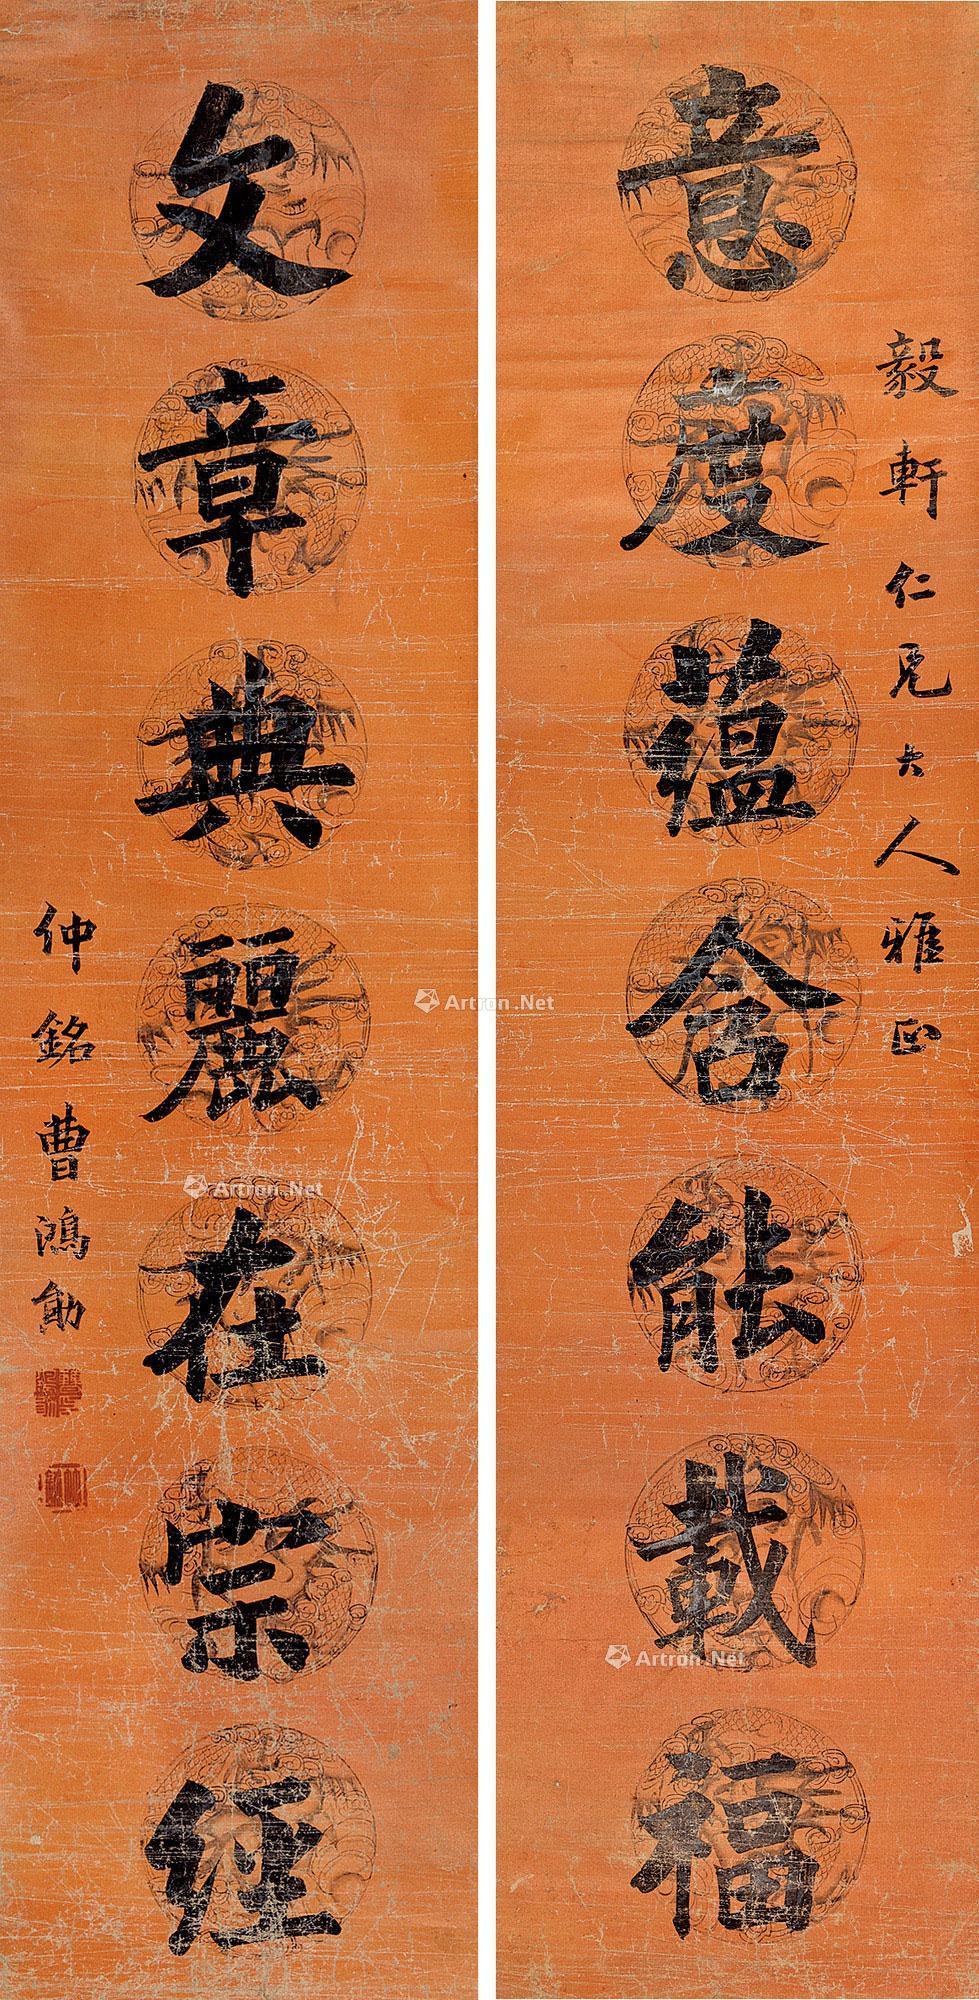 毅軒仁兄大人雅正
意度蕴含能載福
文章典麗在宗經
仲銘曹鴻勛
Artron.Net
Artron.Net
Artron.Net